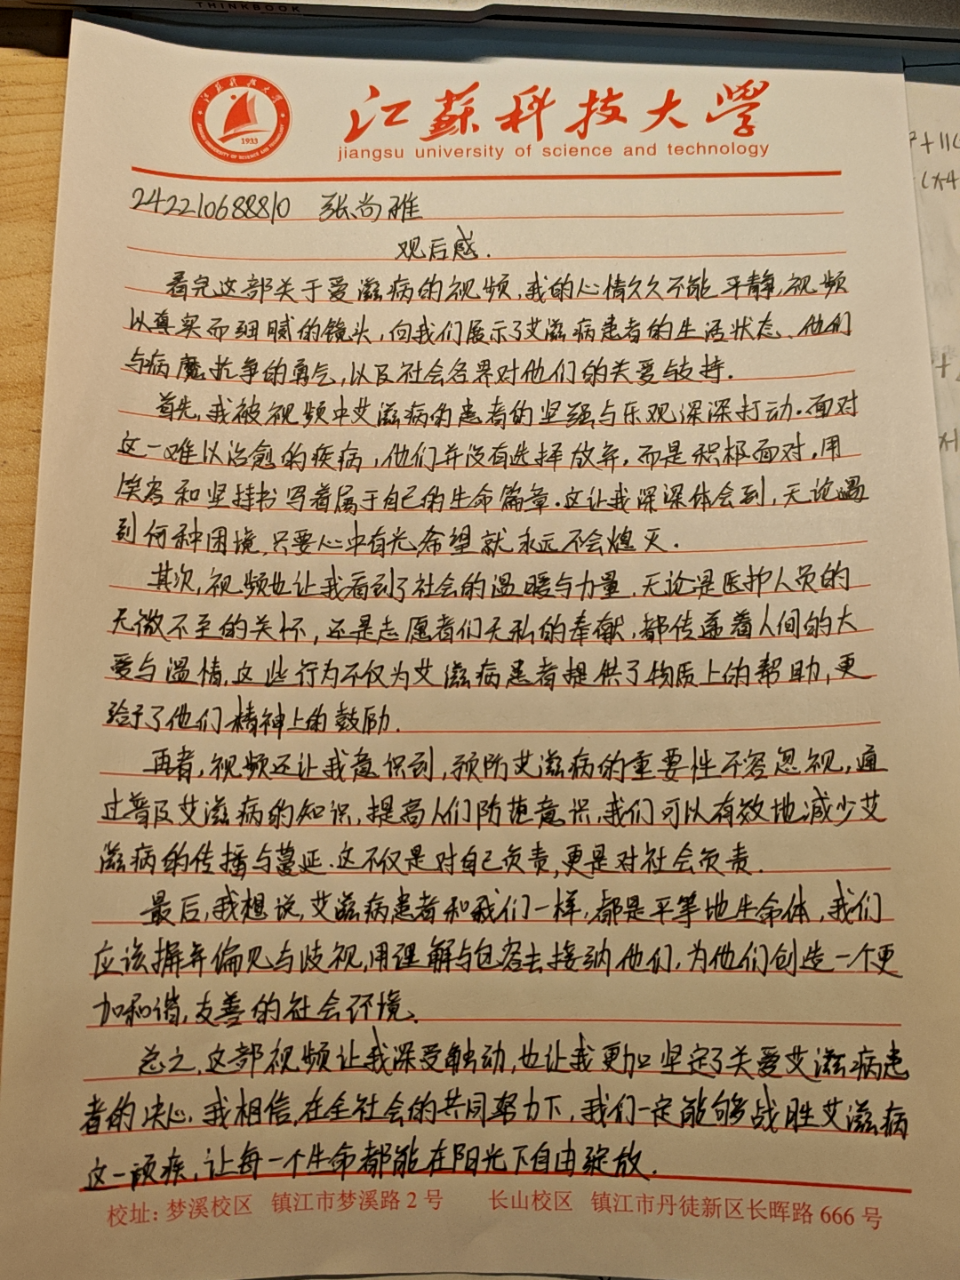 THINKBOOK
江苏科技大学
1933
jiangsu university of science and technology
242210688810 张尚雅
观后感.
看完这部关于爱滋病的视频,我的心情久久不能平静,视频
以真实而细腻的镜头,向我们展示了艾滋病患者的生活状态、他们
与病魔抗争的勇气,以及社会各界对他们的关爱与支持.
首先,我被视频中艾滋病的患者的坚强与乐观深深打动.面对
这一难以治愈的疾病,他们并没有选择放弃,而是积极面对,用
笑容和坚持书写着属于自己的生命篇章.这让我深深体会到,无论遇
到何种困境,只要心中有光,希望就永远不会熄灭.
其次,视频也让我看到了社会的温暖与力量,无论是医护人员的
无微不至的关怀,还是志愿者们无私的奉献,都传递着人间的大
爱与温情,这些行为不仅为艾滋病患者提供了物质上的帮助,更
给予了他们精神上的鼓励.
再者,视频还让我意识到,预防艾滋病的重要性不容忽视,通
过普及艾滋病的知识,提高人们防范意识,我们可以有效地减少艾
滋病的传播与蔓延.这不仅是对自己负责,更是对社会负责.
最后,我想说,艾滋病患者和我们一样,都是平等地生命体,我们
应该摒弃偏见与歧视,用理解与包容去接纳他们,为他们创造一个更
加和谐,友善的社会环境.
总之,这部视频让我深受触动,也让我更加坚定了关爱艾滋病患
者的决心.我相信,在全社会的共同努力下,我们一定能够战胜艾滋病
这一顽疾,让每一个生命都能在阳光下自由绽放.
校址: 梦溪校区 镇江市梦溪路 2 号 长山校区 镇江市丹徒新区长晖路 666 号